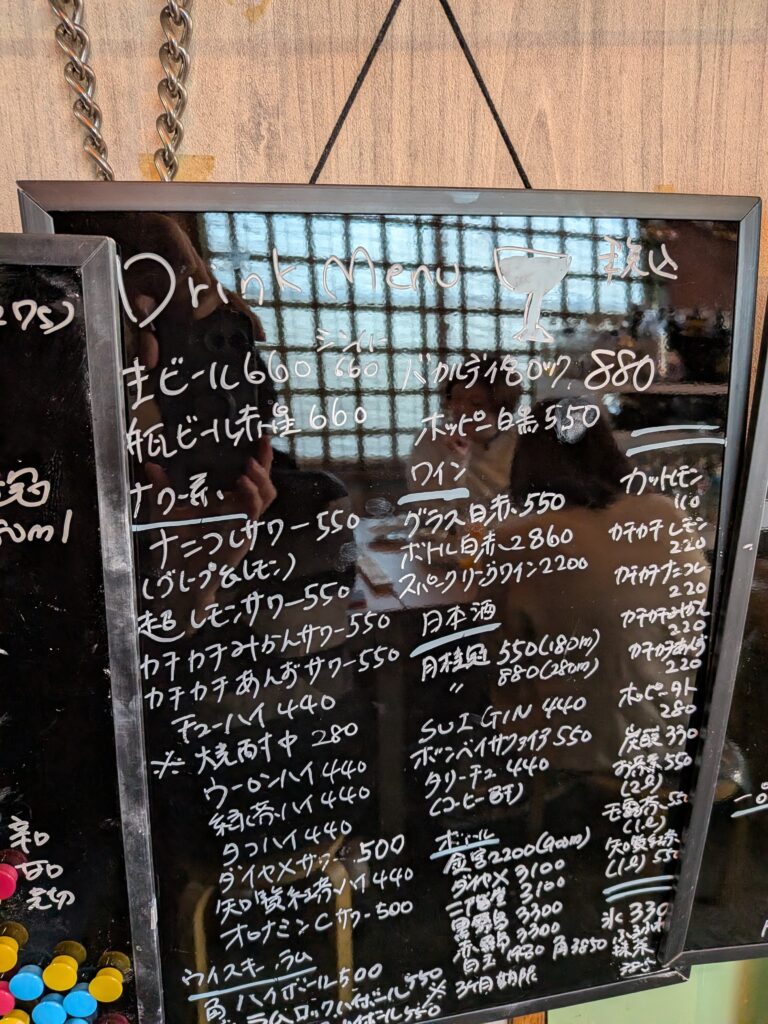 Drink Menu 税込
生ビール 660 シンハー 660
瓶ビール赤星 660
サワー系
ナニコレサワー 550
(グレープ&レモン)
超レモンサワー 550
カチカチみかんサワー 550
カチカチあんずサワー 550
チューハイ 440
※ 焼酎中 280
ウーロンハイ 440
緑茶ハイ 440
タコハイ 440
ダイヤメサワー 500
知覧紅茶ハイ 440
オロナミンCサワー 500
ウイスキー、ラム
角ハイボール 500
ラムロックハイボール 550
ハイボール 550
バカルディ ロック 880
ホッピー白黒 550
ワイン
グラス白赤 550
ボトル白赤 2860
スパークリングワイン 2200
日本酒
月桂冠 550(180m)
〃 880(280m)
SUI GIN 440
ボンベイサファイア 550
タリーチュ 440
(コーヒー)
ボトル
金宮 2200(900m)
ダイヤメ 3100
二階堂 3100
黒霧島 3300
赤霧島 3300
角 3850
3ヶ月期限
カットレモン
110
カチカチレモン
220
カチカチナニコレ
220
カチカチみかん
220
カチカチあんず
220
ホッピー外
280
炭酸 330
お茶系 550
(2ℓ)
(1ℓ)
知覧紅茶
(1ℓ) 550
氷 330
抹茶